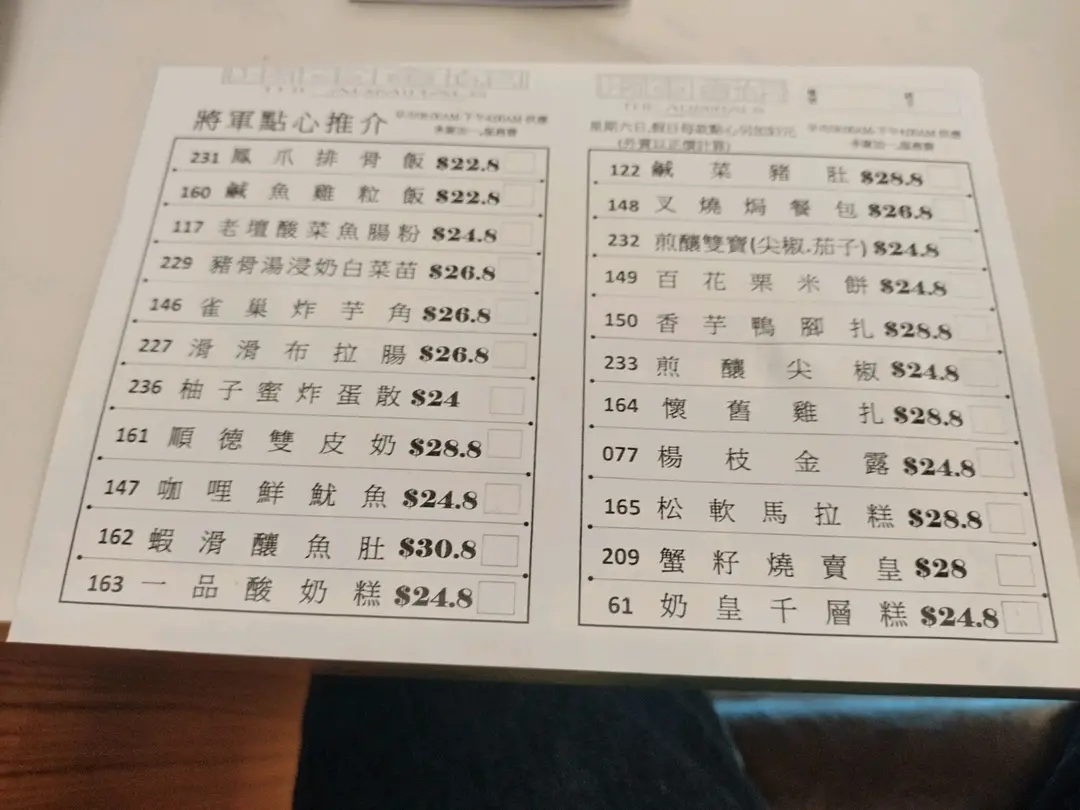 將軍點心推介
231 鳳爪排骨飯 $22.8
160 鹹魚雞粒飯 $22.8
117 老壇酸菜魚腸粉 $24.8
229 豬骨湯浸奶白菜苗 $26.8
146 雀巢炸芋角 $26.8
227 滑滑布拉腸 $26.8
236 柚子蜜炸蛋散 $24
161 順德雙皮奶 $28.8
147 咖哩鮮魷魚 $24.8
162 蝦滑釀魚肚 $30.8
163 一品酸奶糕 $24.8
THE ADMIRALS
星期六日,假日每款點心另加
(外賣以正價計算)
122 鹹菜豬肚 $28.8
148 叉燒焗餐包 $26.8
232 煎釀雙寶(尖椒.茄子) $24.8
149 百花粟米餅 $24.8
150 香芋鴨腳扎 $28.8
233 煎釀尖椒 $24.8
164 懷舊雞扎 $28.8
077 楊枝金露 $24.8
165 松軟馬拉糕 $28.8
209 蟹籽燒賣皇 $28
61 奶皇千層糕 $24.8